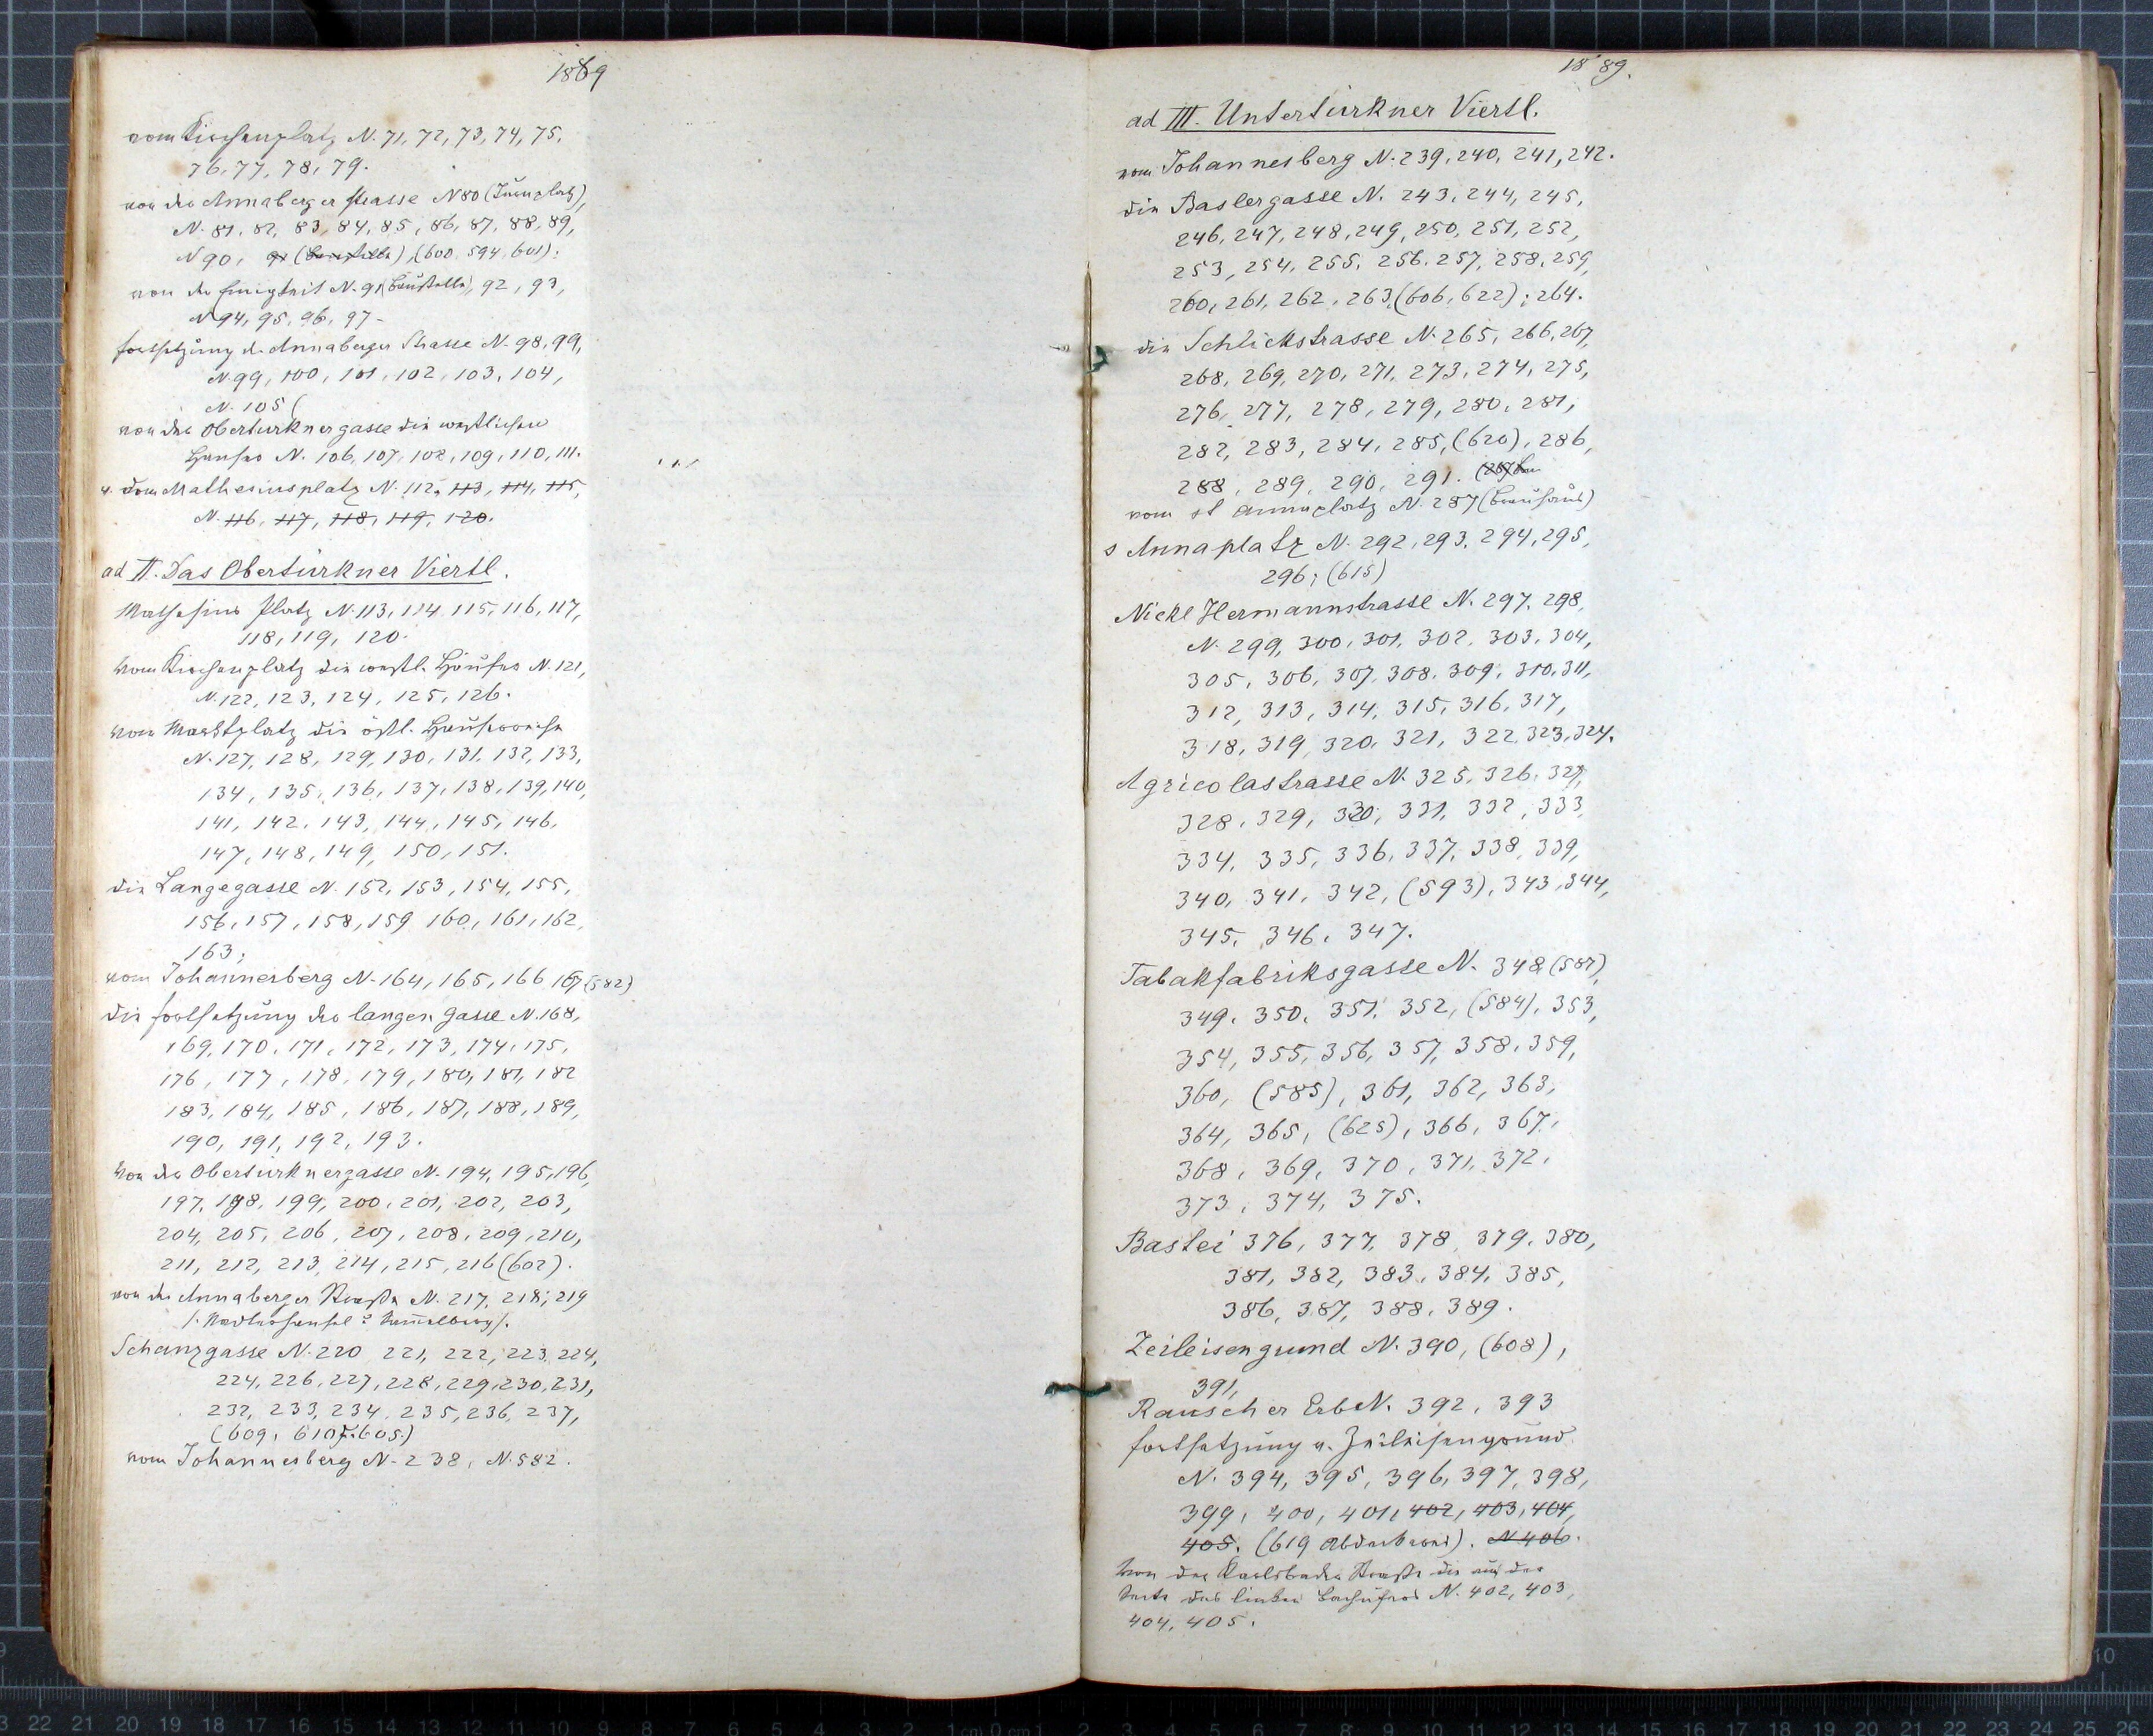 1889
vom Kirchenplatz N. 71, 72, 73, 74, 75,
76, 77, 78, 79.
von der Annaberger strasse N 80 (Turnplatz),
N. 81, 82, 83, 84, 85, 86, 87, 88, 89,
N 90, 91 (Baustelle), (600, 594, 601).
von der Einigkeit N. 91 (Baustelle), 92, 93,
N 94, 95, 96, 97-
fortsetzung d. Annaberger Strasse N. 98, 99,
N. 99, 100, 101, 102, 103, 104,
N. 105 (
von der Obertürknergasse die westlichen
Häuser N. 106, 107, 108, 109, 110, 111.
v. dem Mathesiusplatz N. 112, 113, 114, 115,
N. 116, 117, 118, 119, 120.
ad II. Das Obertürkner Viertl.
Mathesius Platz N. 113, 114, 115, 116, 117,
118, 119, 120.
vom Kirchenplatz die westl. Häuser N. 121,
N. 122, 123, 124, 125, 126.
vom Marktplatz die östl. Häuserreihe
N. 127, 128, 129, 130, 131, 132, 133,
134, 135, 136, 137, 138, 139, 140,
141, 142, 143, 144, 145, 146,
147, 148, 149, 150, 151.
die Langegasse N. 152, 153, 154, 155,
156, 157, 158, 159 160, 161, 162,
163;
vom Johannesberg N. 164, 165, 166 167 (582)
die fortsetzung der langen gasse N. 168,
169, 170, 171, 172, 173, 174, 175,
176, 177, 178, 179, 180, 181, 182
183, 184, 185, 186, 187, 188, 189,
190, 191, 192, 193.
von der Obertürknergasse N. 194, 195, 196,
197, 198, 199, 200, 201, 202, 203,
204, 205, 206, 207, 208, 209, 210,
211, 212, 213, 214, 215, 216 (602).
von der Annaberger Straße N. 217, 218; 219
Schanzgasse N. 220 221, 222, 223, 224,
224, 226, 227, 228, 229, 230, 231,
232, 233, 234, 235, 236, 237,
(609, 610, 605)
vom Johannesberg N. 238, N. 582.
18 89.
ad III. Untertürkner Viertl.
vom Johannesberg N. 239, 240, 241, 242.
die Baslergasse N. 243, 244, 245,
246, 247, 248, 249, 250, 251, 252,
253, 254, 255, 256, 257, 258, 259,
260, 261, 262, 263, (606, 622); 264.
die Schlickstrasse N. 265, 266, 267,
268, 269, 270, 271, 273, 274, 275,
276, 277, 278, 279, 280, 281,
282, 283, 284, 285, (620), 286,
288, 289, 290, 291. (287)
vom st annaplatz N. 287 (Brauhaus)
s Annaplatz N. 292, 293, 294, 295,
296; (615)
Nickl Hermannstrasse N. 297, 298,
N. 299, 300, 301, 302, 303, 304,
305, 306, 307, 308, 309, 310, 311,
312, 313, 314, 315, 316, 317,
318, 319, 320, 321, 322, 323, 324.
Agricolastrasse N. 325, 326, 327,
328, 329, 330, 331, 332, 333,
334, 335, 336, 337, 338, 339,
340, 341, 342, (593), 343, 344,
345, 346, 347.
Tabakfabriksgasse N. 348 (587),
349, 350, 351, 352, (584), 353,
354, 355, 356, 357, 358, 359,
360, (585), 361, 362, 363,
364, 365, (625), 366, 367,
368, 369, 370, 371, 372,
373, 374, 375.
Bastei 376, 377, 378, 379, 380,
381, 382, 383, 384, 385,
386, 387, 388, 389.
Zeileisengrund N. 390, (608),
391,
Rauscher Erb N. 392, 393
fortsetzung v. Zeileisengrund
N. 394, 395, 396, 397, 398,
399, 400, 401, 402, 403, 404,
405. (619 Abdeckerei). N 406.
Von der Karlsbader Straße die auf der
Seite des linken Bachufers N. 402, 403,
404, 405.